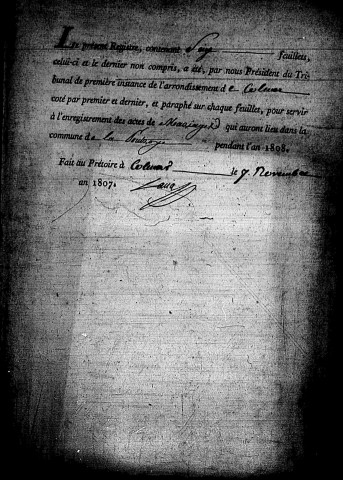 Le présent Registre, contenant Six feuillets,
celui-ci et le dernier non compris, a été, par nous Président du Tri-
bunal de première instance de l'arrondissement de Colmar
coté par premier et dernier, et paraphé sur chaque feuillet, pour servir
à l'enregistrement des actes de Mariages qui auront lieu dans la
commune de la Poutroye pendant l'an 1808.
Fait au Prétoire à Colmar le 7 Novembre
an 1807.